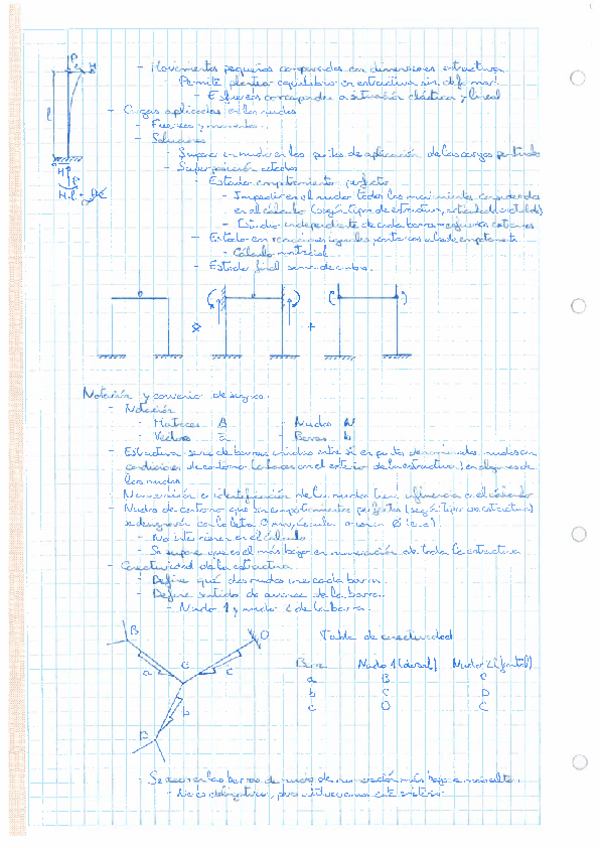 - Movimientos pequeños comparados con dimensiones estructura
- Permite plantear equilibrio en estructura sin deformar.
- Esfuerzos corresponden a situación elástica y lineal
- Cargas aplicadas en los nudos
- Fuerzas y momentos.
- Soluciones
- Suponer un nudo en los puntos de aplicación de las cargas
- Superposición estados
- Estado empotramiento perfecto
- Impedir en el nudo todos los movimientos considerados
en el cálculo (según tipo de estructura, articulada
- Estudio independiente de cada barra
- Estado con reacciones iguales
- Cálculo matricial
- Estado final suma de ambos.
+
Notación y convenio de signos.
- Notación
- Matrices A - Nudos N
- Vectores a - Barras b
- Estructura serie de barras unidas entre sí en puntos denominados nudos con
condiciones de contorno (enlaces con el exterior de la estructura) en algunos de
los nudos
- Numeración o identificación de los nudos tiene influencia en el cálculo
- Nudos de contorno que sin empotramientos perfectos (según tipo estructura)
se designarán con la letra O mayúscula o con un Ø (cero).
- No intervienen en el cálculo
- Se supone que es el más bajo en numeración de toda la estructura
- Conectividad de la estructura
- Define qué dos nudos une cada barra.
- Define sentido de avance de la barra.
- Nudo 1 y nudo 2 de la barra.
Tabla de conectividad
Barra Nudo 1 (dorsal) Nudo 2 (frontal)
a B C
b C D
c O C
- Se recorren las barras de nudo de numeración más baja a más alta.
- No es obligatorio, pero utilizaremos este criterio.